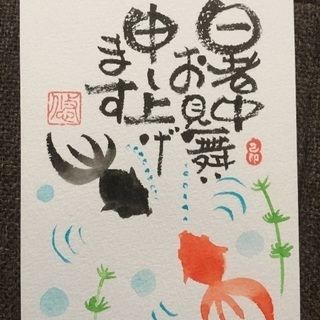 暑中
お見舞い
申し上げ
ます